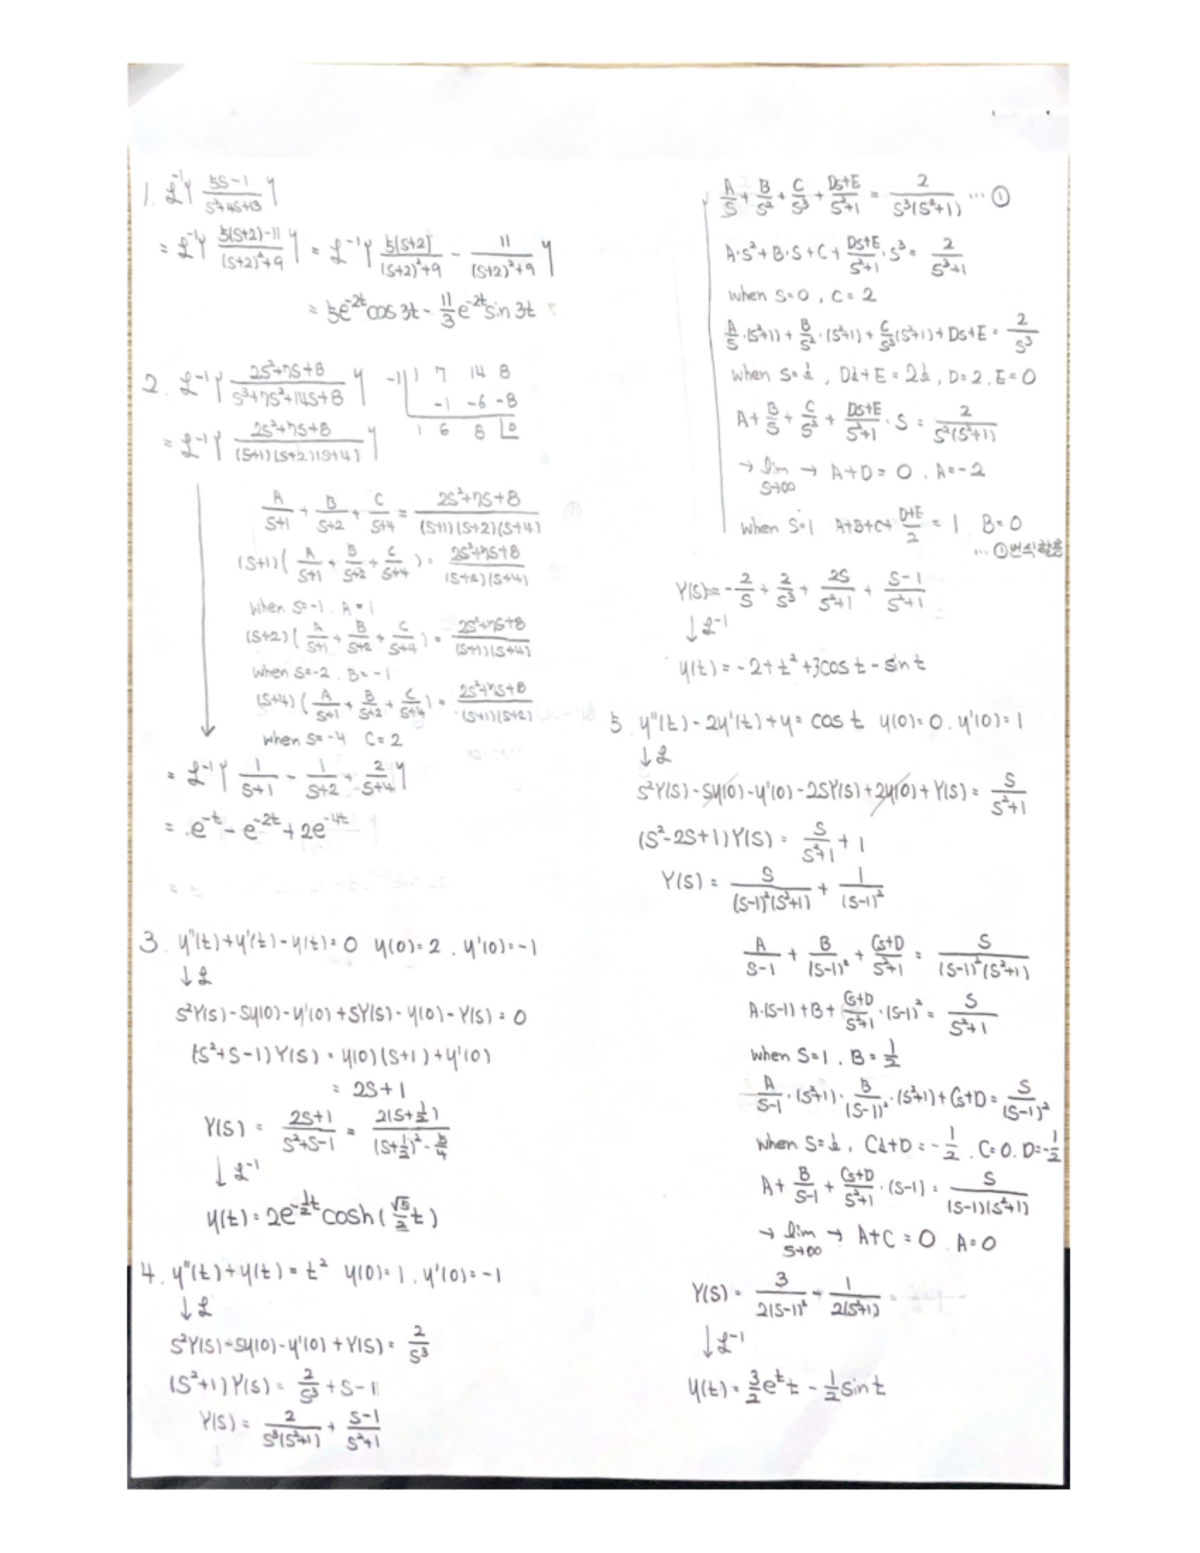 1. ℒ⁻¹{ (5S-1)/(S²+4S+13) }
= ℒ⁻¹{ (5(S+2)-11)/((S+2)²+9) } = ℒ⁻¹{ 5(S+2)/((S+2)²+9) - 11/((S+2)²+9) }
= 5e^(-2t) cos 3t - (11/3)e^(-2t) sin 3t
2. ℒ⁻¹{ (2S²+7S+8)/(S³+7S²+14S+8) }
-1 | 1 7 14 8
-1 -6 -8
1 6 8 |0
= ℒ⁻¹{ (2S²+7S+8)/((S+1)(S+2)(S+4)) }
A/(S+1) + B/(S+2) + C/(S+4) = (2S²+7S+8)/((S+1)(S+2)(S+4))
(S+1)( A/(S+1) + B/(S+2) + C/(S+4) ) = (2S²+7S+8)/((S+2)(S+4))
when S=-1. A=1
(S+2)( A/(S+1) + B/(S+2) + C/(S+4) ) = (2S²+7S+8)/((S+1)(S+4))
when S=-2. B=-1
(S+4)( A/(S+1) + B/(S+2) + C/(S+4) ) = (2S²+7S+8)/((S+1)(S+2))
when S=-4 C=2
= ℒ⁻¹{ 1/(S+1) - 1/(S+2) + 2/(S+4) }
= e^(-t) - e^(-2t) + 2e^(-4t)
3. y''(t)+y'(t)-y(t)=0 y(0)=2. y'(0)=-1
↓ℒ
S²Y(S)-Sy(0)-y'(0)+SY(S)-y(0)-Y(S)=0
(S²+S-1)Y(S)=y(0)(S+1)+y'(0)
= 2S+1
Y(S) = (2S+1)/(S²+S-1) = 2(S+1/2)/((S+1/2)²-5/4)
↓ℒ⁻¹
y(t)=2e^(-1/2 t) cosh(√5/2 t)
4. y''(t)+y(t)=t² y(0)=1. y'(0)=-1
↓ℒ
S²Y(S)-Sy(0)-y'(0)+Y(S)= 2/S³
(S²+1)Y(S)= 2/S³ +S-1
Y(S)= 2/(S³(S²+1)) + (S-1)/(S²+1)
A/S + B/S² + C/S³ + (Ds+E)/(S²+1) = 2/(S³(S²+1)) ... ①
A·S²+B·S+C+ (Ds+E)/(S²+1) ·S³= 2/(S²+1)
when S=0, C=2
A/S·(S²+1)+ B/S²·(S²+1)+ C/S³(S²+1)+Ds+E= 2/S³
when S=i, Di+E=2i, D=2. E=0
A+ B/S + C/S² + (Ds+E)/(S²+1) ·S = 2/(S²(S²+1))
→ lim S→∞ → A+D=0. A=-2
when S=1 A+B+C+ (D+E)/2 = 1 B=0
... ①번식 활용
Y(S)= -2/S + 2/S³ + 2S/(S²+1) + (S-1)/(S²+1)
↓ℒ⁻¹
y(t)=-2+t²+3cos t-sin t
5. y''(t)-2y'(t)+y= cos t y(0)=0. y'(0)=1
↓ℒ
S²Y(S)-Sy(0)-y'(0)-2SY(S)+2y(0)+Y(S)= S/(S²+1)
(S²-2S+1)Y(S)= S/(S²+1) +1
Y(S)= S/((S-1)²(S²+1)) + 1/(S-1)²
A/(S-1) + B/(S-1)² + (Cs+D)/(S²+1) = S/((S-1)²(S²+1))
A·(S-1)+B+ (Cs+D)/(S²+1) ·(S-1)²= S/(S²+1)
when S=1. B=1/2
A/(S-1)·(S²+1)· B/(S-1)²·(S²+1)+Cs+D= S/(S-1)²
when S=i, Ci+D=-1/2. C=0. D=-1/2
A+ B/(S-1) + (Cs+D)/(S²+1) ·(S-1)= S/((S-1)(S²+1))
→ lim S→∞ → A+C=0. A=0
Y(S)= 3/(2(S-1)²) - 1/(2(S²+1))
↓ℒ⁻¹
y(t)= 3/2 e^t t - 1/2 sin t